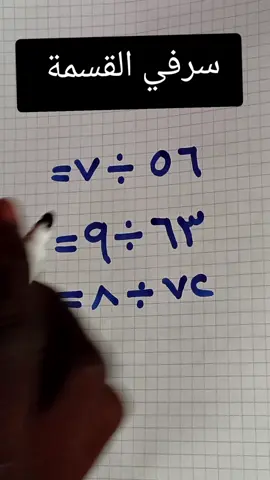 سرفي القسمة
٥٦ ÷ ٧ =
٦٣ ÷ ٩ =
٧٢ ÷ ٨ =